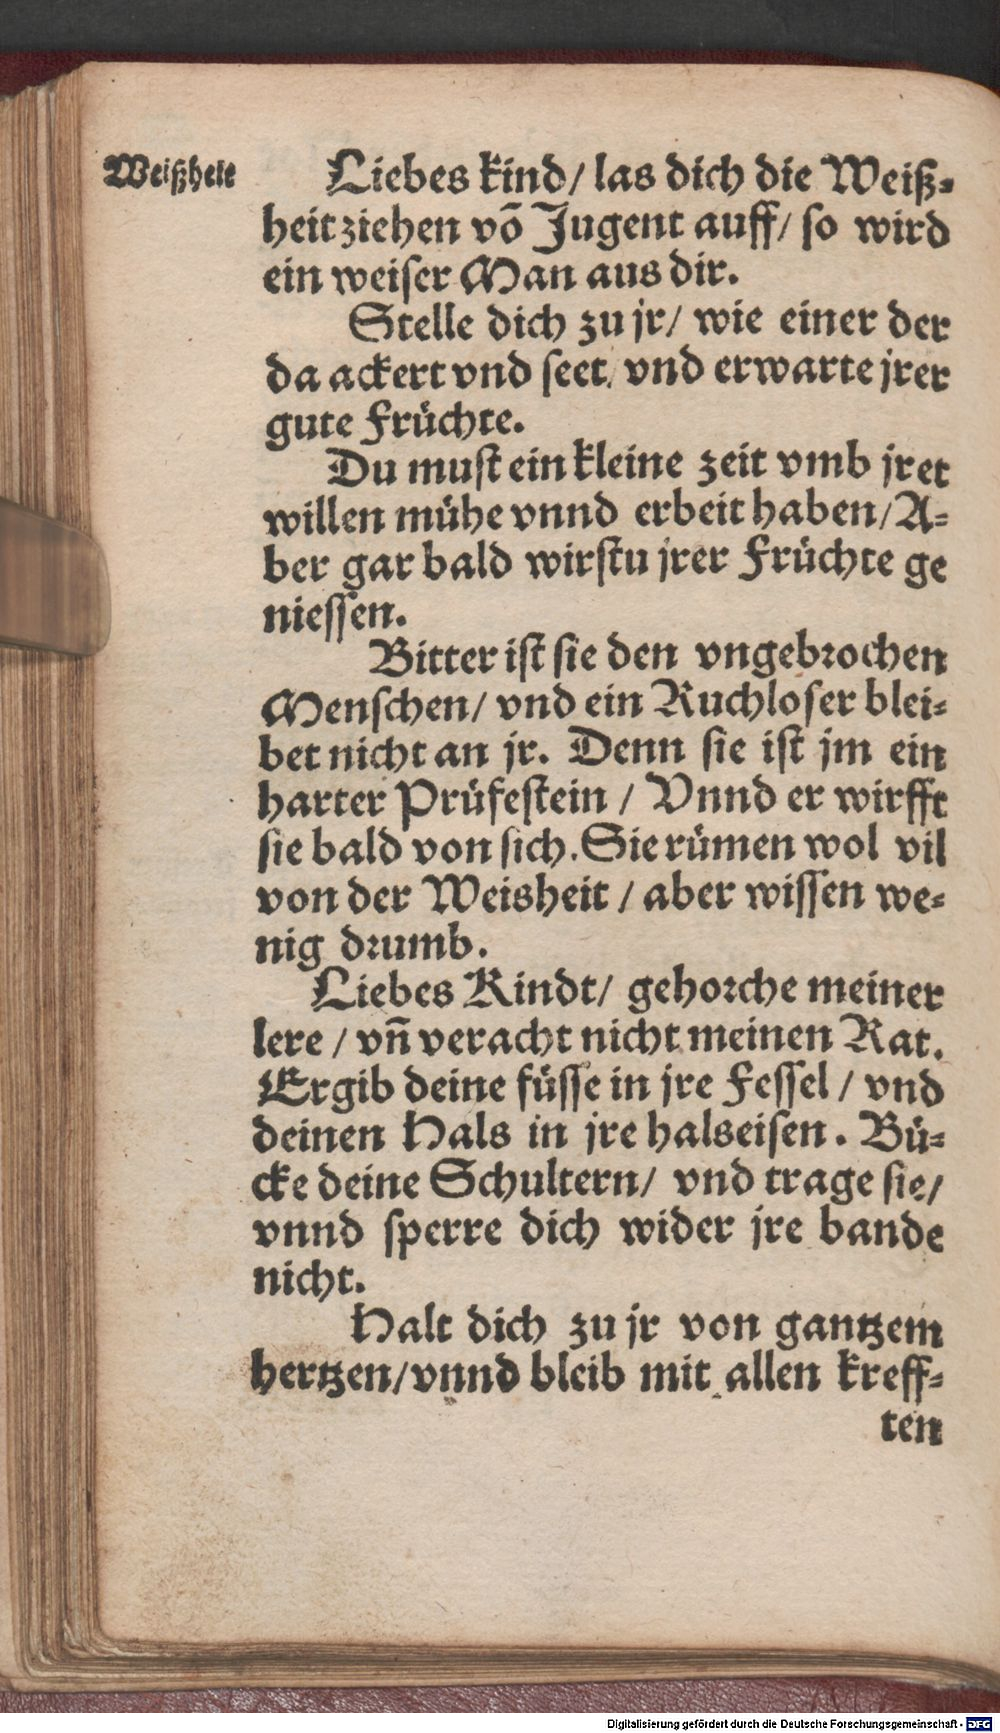 Weißheit
Liebes kind/ las dich die Weiß-
heit ziehen võ Jugent auff/ so wird
ein weiser Man aus dir.
Stelle dich zu jr/ wie einer der
da ackert vnd seet/ vnd erwarte jrer
gute Früchte.
Du must ein kleine zeit vmb jret
willen mühe vnnd erbeit haben/ A-
ber gar bald wirstu jrer Früchte ge
niessen.
Bitter ist sie den vngebrochen
Menschen/ vnd ein Ruchloser blei-
bet nicht an jr. Denn sie ist jm ein
harter Prüfestein / Vnnd er wirfft
sie bald von sich. Sie rümen wol vil
von der Weisheit / aber wissen we-
nig drumb.
Liebes Kindt/ gehorche meiner
lere / vñ veracht nicht meinen Rat.
Ergib deine füsse in jre Fessel / vnd
deinen Hals in jre halseisen. Bü-
cke deine Schultern/ vnd trage sie/
vnnd sperre dich wider jre bande
nicht.
Halt dich zu jr von gantzem
hertzen/ vnnd bleib mit allen kreff-
ten
Digitalisierung gefördert durch die Deutsche Forschungsgemeinschaft - DFG